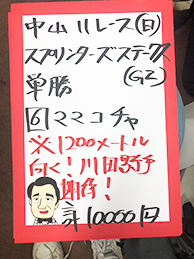 中山11レース(日)
スプリンターズステークス
(G2)
単勝
6 ママコチャ
※1200メートル
向く!川田騎手
期待!
計10000円